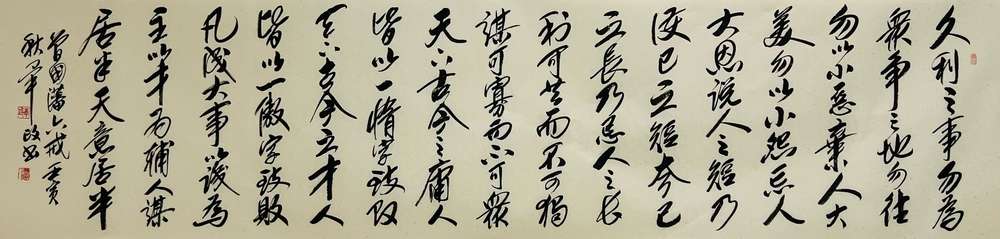 久利之事勿為
眾爭之地勿往
勿以小惡棄人大
美勿以小怨忘人
大恩說人之短乃
護己之短夸己
之長乃忌人之長
利可共而不可獨
謀可寡而不可眾
天下古今之庸人
皆以一惰字致敗
天下古今之才人
皆以一傲字致敗
凡成大事以識為
主以才為輔人謀
居半天意居半
曾國藩六戒壬寅
秋